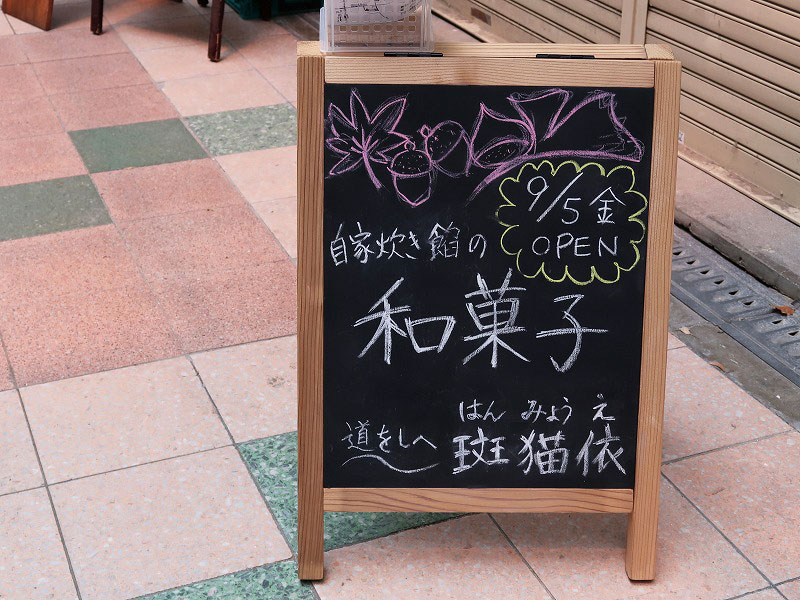 9/5金
OPEN
自家炊き餡の
和菓子
はん みょう え
道をしへ 斑猫依